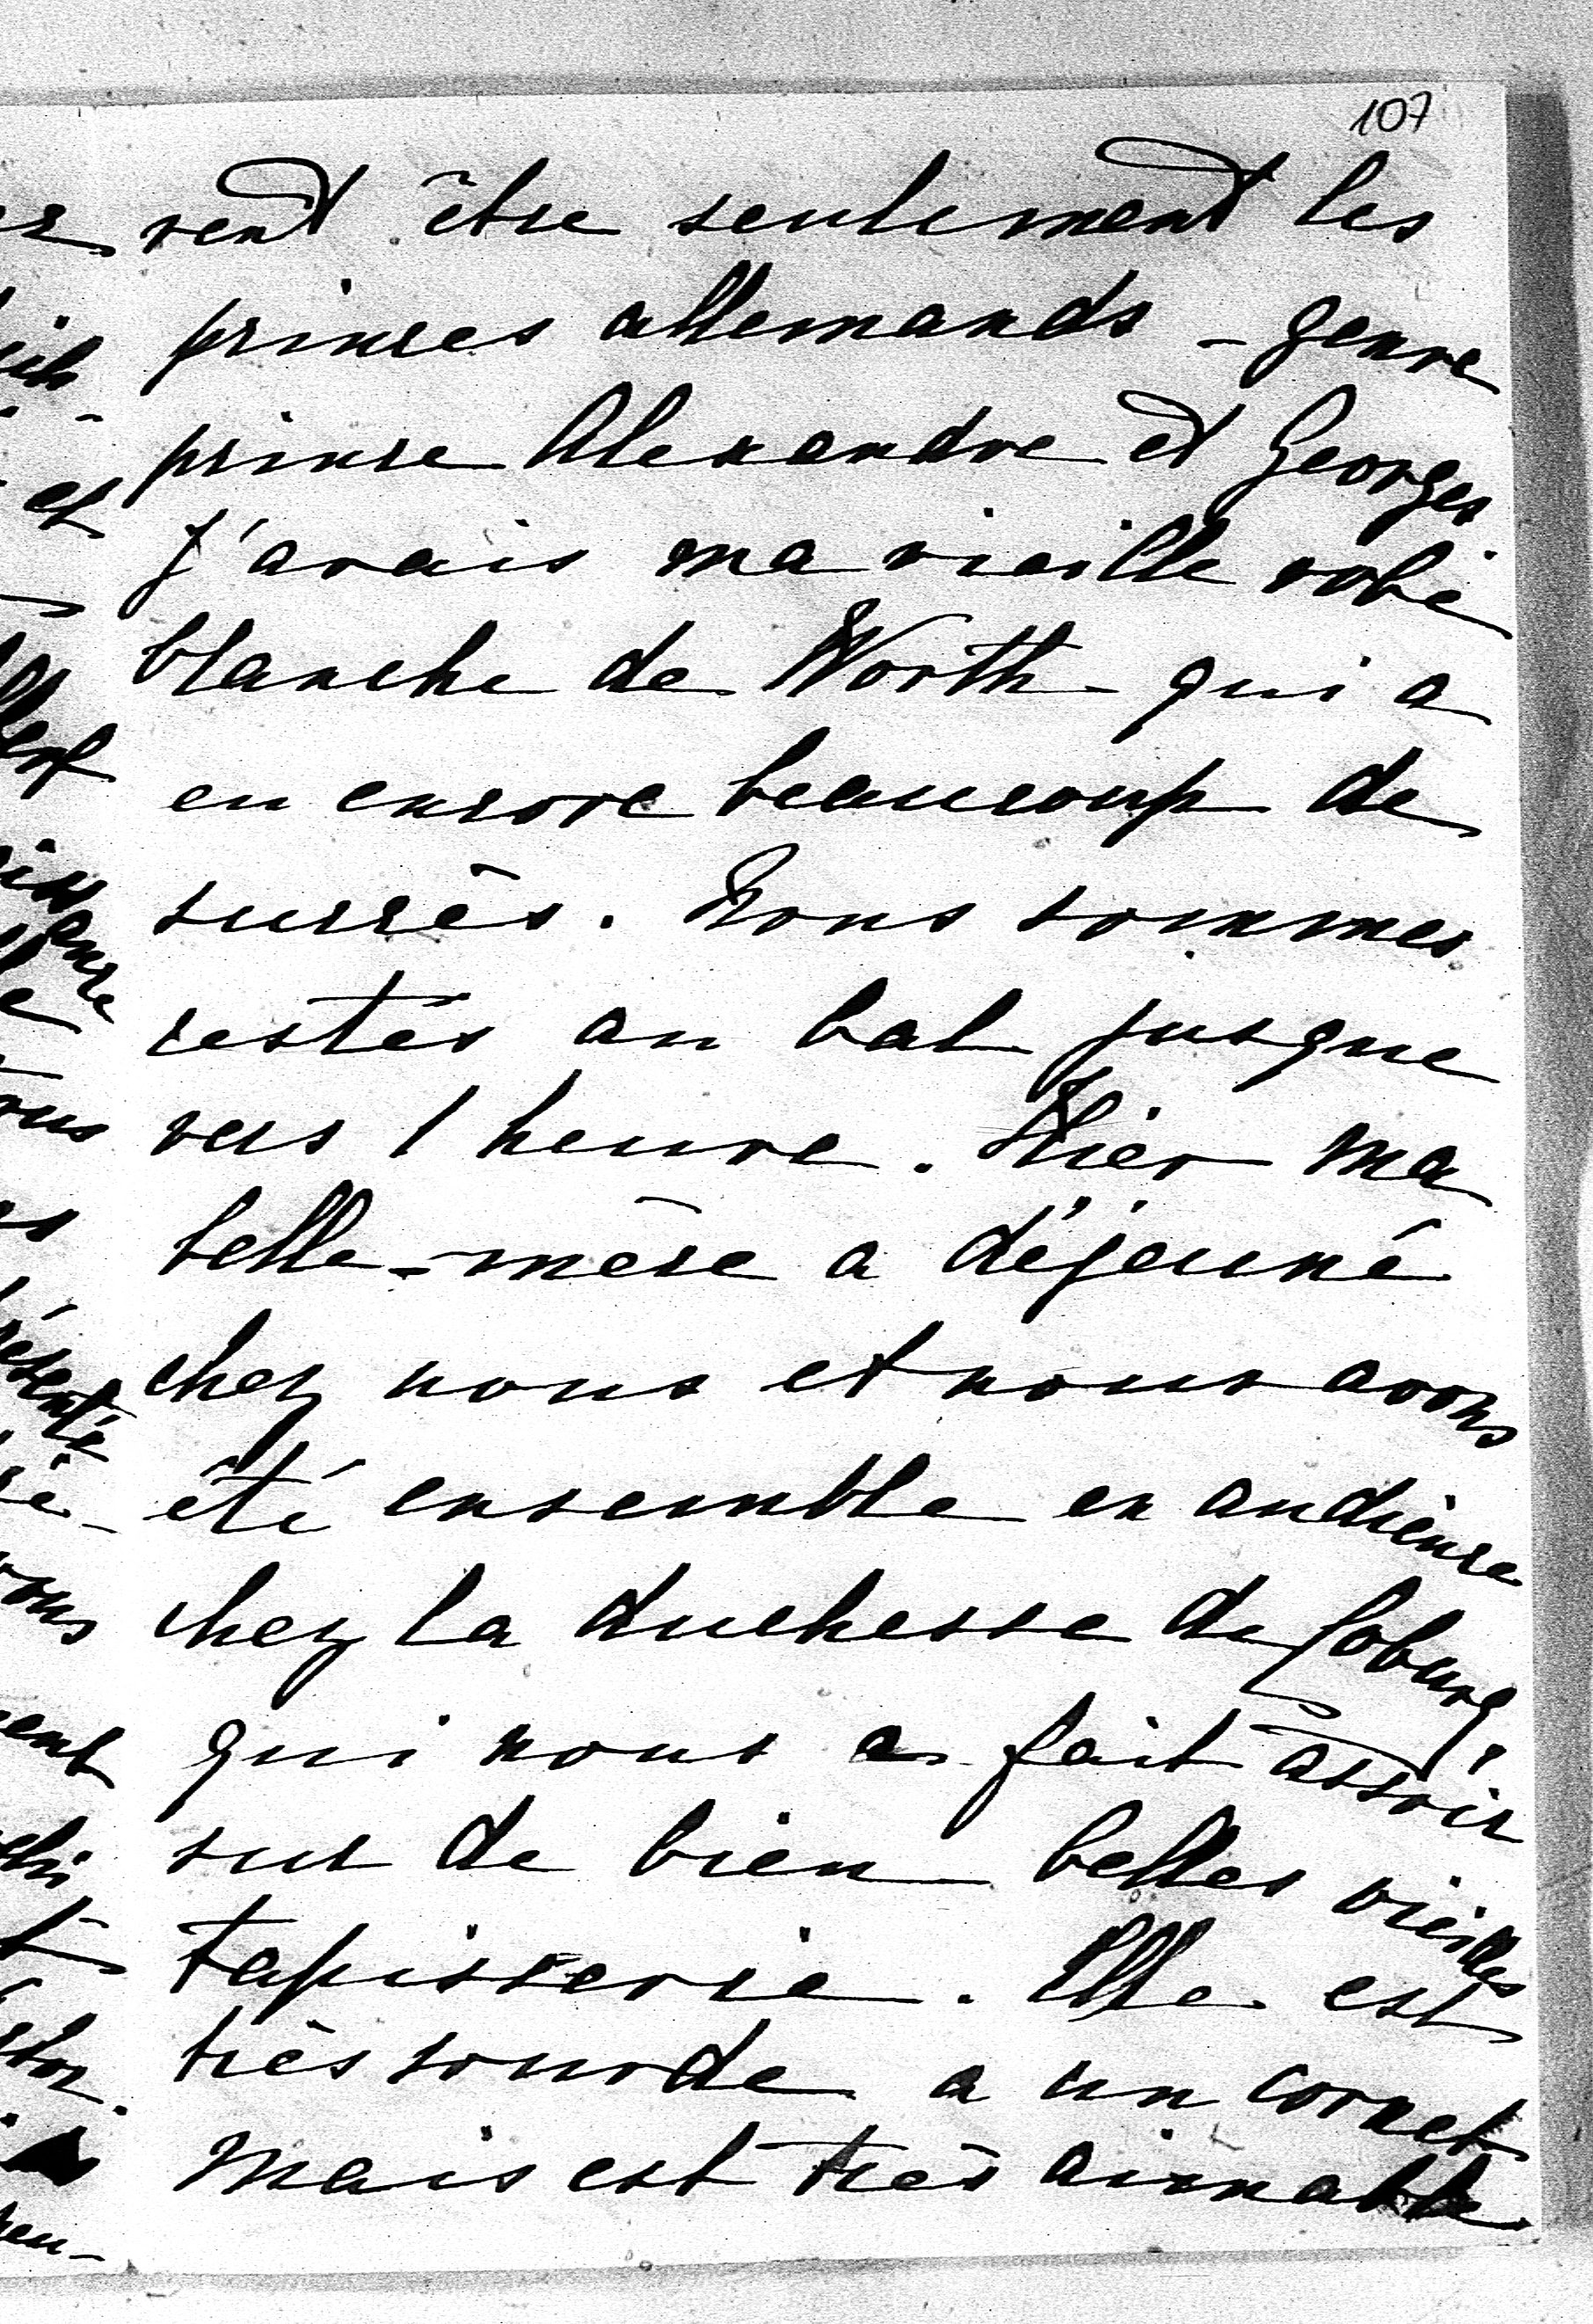 107
vent être seulement les
princes allemands - genre
prince Alexandre et Georges
J'avais ma vieille robe
blanche de Worth - qui a
eu encore beaucoup de
succès. Nous sommes
restés au bal jusque
vers 1 heure. Hier ma
belle-mère a déjeuné
chez nous et nous avons
été ensemble en audience
chez la duchesse de Coburg,
qui nous a fait assoir
sur de bien belles vieilles
tapisserie. Elle est
très sourde a un cornet
mais est très aimable.